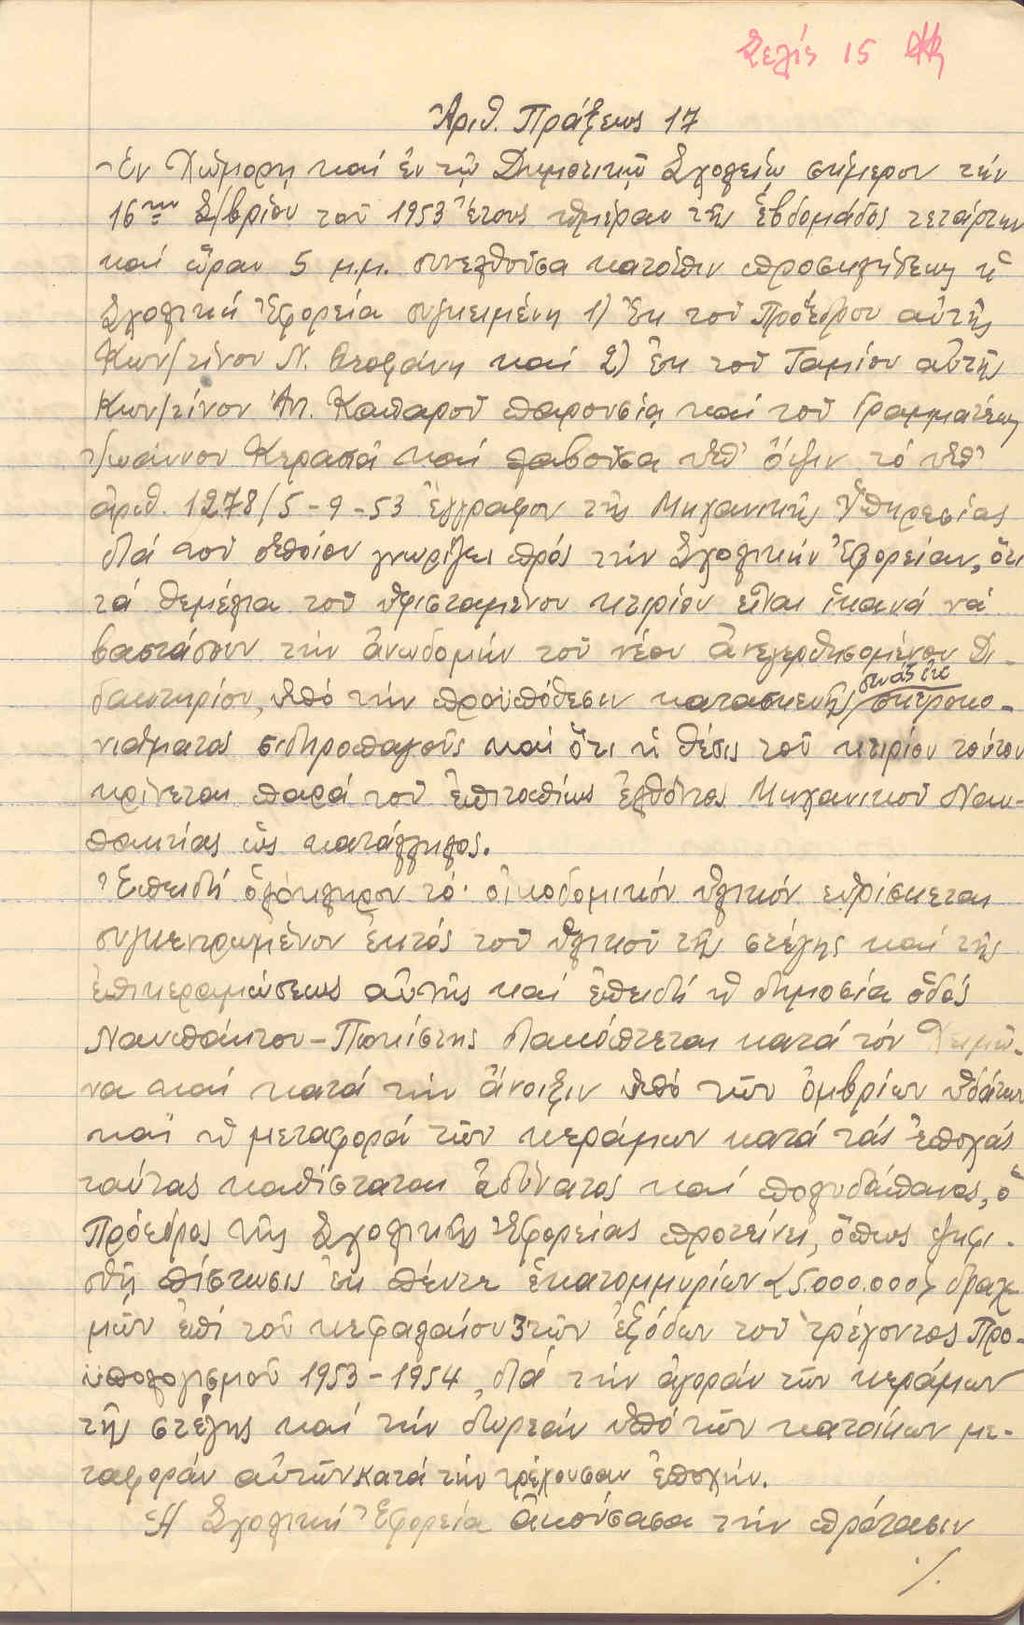 Σελίς 15
Ἀριθ. Πράξεως 17
Ἐν Χώμορη καί ἐν τῷ Δημοτικῷ Σχολείῳ σήμερον τήν
16ην 7/βρίου τοῦ 1953 ἔτους ἡμέραν τῆς ἑβδομάδος τετάρτην
καί ὥραν 5 μ.μ. συνελθοῦσα κατόπιν προσκλήσεως ἡ
Σχολική Ἐφορεία συγκειμένη 1) Ἐκ τοῦ Προέδρου αὐτῆς
Κων/τίνου Ν. καί 2) ἐκ τοῦ Ταμίου αὐτῆς
Κων/τίνου Ἀπ. Καπαροῦ παρουσίᾳ καί τοῦ Γραμματέως
Ἰωάννου Κερασιᾶ καί λαβοῦσα ὑπ' ὄψιν τό ὑπ'
ἀριθ. 1278/5-9-53 ἔγγραφον τῆς Μηχανικῆς Ὑπηρεσίας
διά τοῦ ὁποίου γνωρίζει πρός τήν Σχολικήν Ἐφορείαν, ὅτι
τά θεμέλια τοῦ ὑφισταμένου κτιρίου εἶναι ἱκανά νά
βαστάσουν τήν ἀνωδομήν τοῦ νέου ἀνεγερθησομένου Δι-
δακτηρίου, ὑπό τήν προϋπόθεσιν κατασκευῆς σκιροκο-
νιάματος σιδηροπαγοῦς καί ὅτι ἡ θέσις τοῦ κτιρίου τούτου
κρίνεται παρά τοῦ ἐπιτοπίως ἐλθόντος Μηχανικοῦ Ναυ-
πακτίας ὡς κατάλληλος.
Ἐπειδή ὁλόκληρον τό οἰκοδομικόν ὑλικόν εὑρίσκεται
συγκεντρωμένον ἐκτός τοῦ ὑλικοῦ τῆς στέγης καί τῆς
ἐπικεραμώσεως αὐτῆς καί ἐπειδή ἡ δημοσία ὁδός
Ναυπάκτου-Πωκίστης διακόπτεται κατά τόν Χειμῶ-
να καί κατά τήν ἄνοιξιν ὑπό τῶν ὀμβρίων ὑδάτων
καί ἡ μεταφορά τῶν κεράμων κατά τάς ἐποχάς
ταύτας καθίσταται ἀδύνατος καί πολυδάπανος, ὁ
Πρόεδρος τῆς Σχολικῆς Ἐφορείας προτείνει, ὅπως ψηφι-
σθῇ πίστωσις ἐκ πέντε ἑκατομμυρίων (5.000.000) δραχ-
μῶν ἐπί τοῦ κεφαλαίου 3 τῶν ἐξόδων τοῦ τρέχοντος Προ-
ϋπολογισμοῦ 1953-1954, διά τήν ἀγοράν τῶν κεράμων
τῆς στέγης καί τήν δωρεάν ὑπό τῶν κατοίκων με-
ταφοράν αὐτῶν κατά τήν τρέχουσαν ἐποχήν.
Ἡ Σχολική Ἐφορεία ἀκούσασα τήν πρότασιν
./.